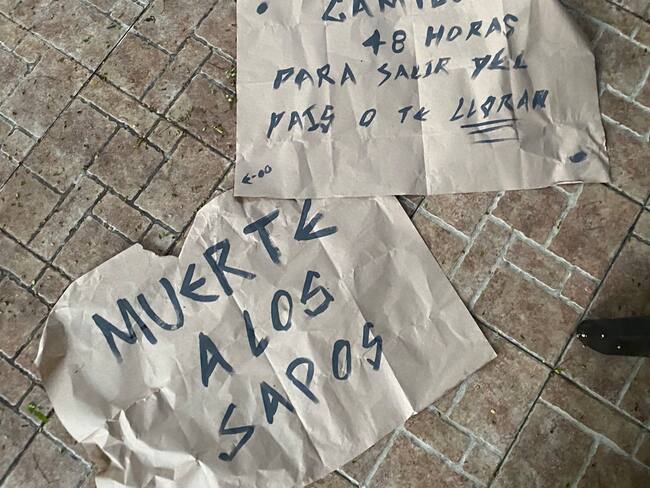 48 HORAS
PARA SALIR DEL
PAIS O TE LLORAN
MUERTE
A LOS
SAPOS